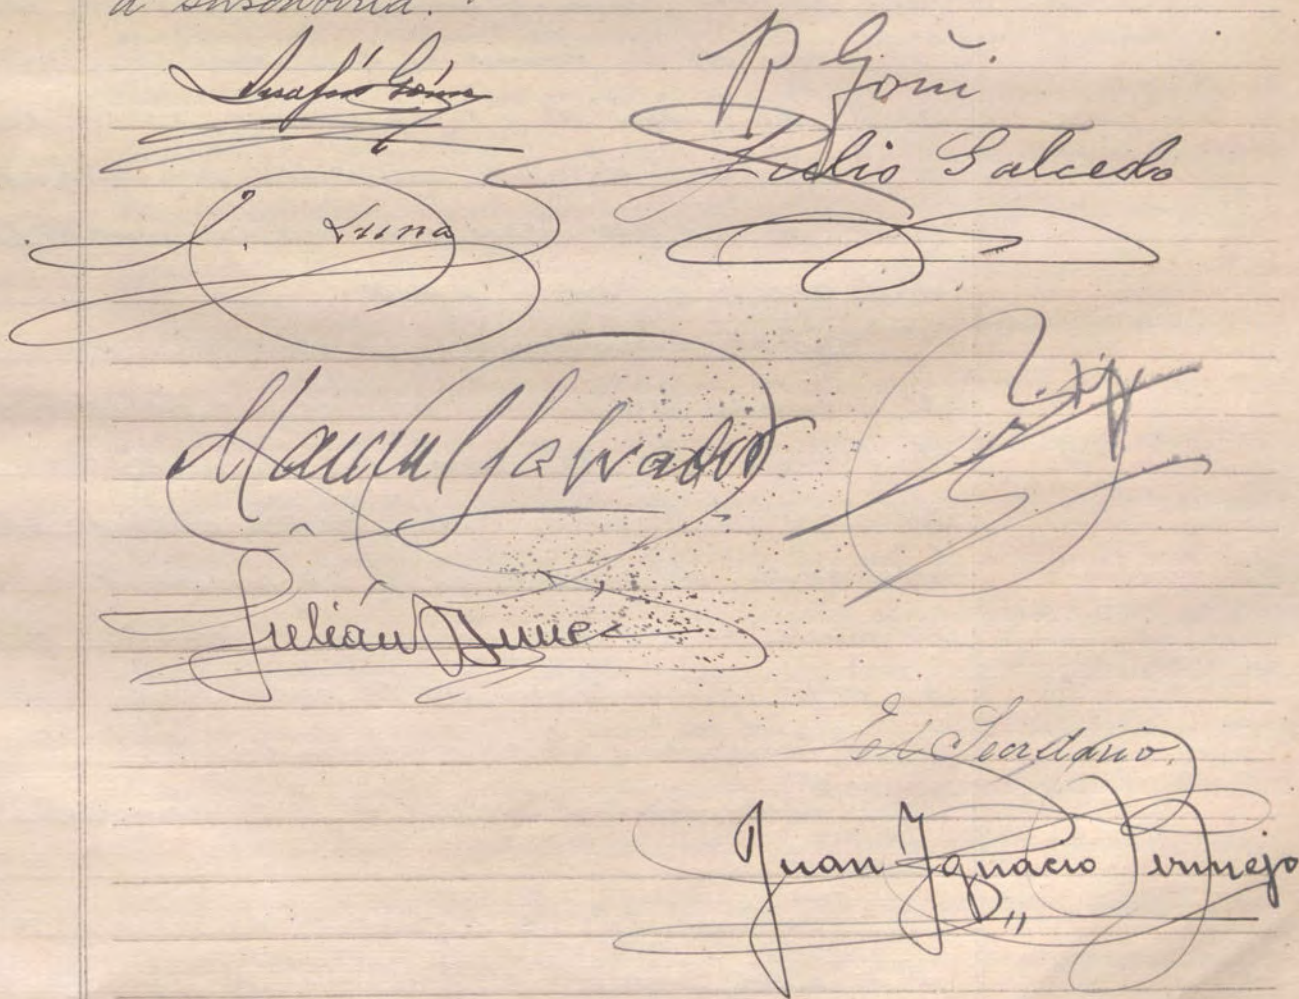 a
Serafín Gómez
R Goñi
Julio Salcedo
J. Luna
Manuel Salvador
Julián
El Secretario.
Juan Ignacio Bermejo